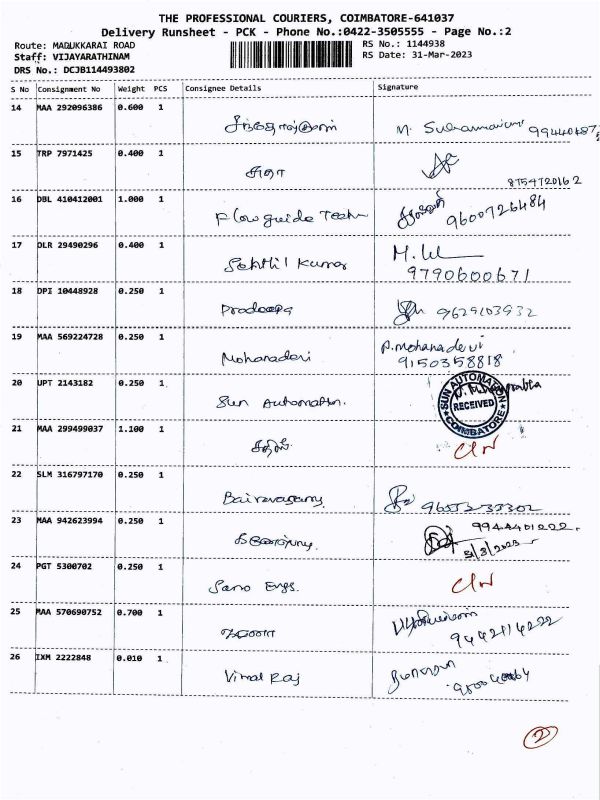 THE PROFESSIONAL COURIERS, COIMBATORE-641037
Delivery Runsheet - PCK - Phone No.:0422-3505555 - Page No.:2
Route: MADUKKARAI ROAD RS No.: 1144938
Staff: VIJAYARATHINAM RS Date: 31-Mar-2023
DRS No.: DCJB114493802
S No Consignment No Weight PCS Consignee Details Signature
14 MAA 292096386 0.600 1
15 TRP 7971425 0.400 1
சுதா 8754720162
16 DBL 410412001 1.000 1
Flow guide Tech 9600726484
17 DLR 29490296 0.400 1
Senthil Kumar 9790600671
18 DPI 10448928 0.250 1
Pradeepa 9629103932
19 MAA 569224728 0.250 1
Mohanadevi P.Mohanadevi
9150358818
20 UPT 2143182 0.250 1
Sun Automation. SUN AUTOMATION RECEIVED COIMBATORE
21 MAA 299499037 1.100 1
22 SLM 316797170 0.250 1
23 MAA 942623994 0.250 1
9944401222.
31/3/2023
24 PGT 5300702 0.250 1
Sano Engs.
25 MAA 570690752 0.700 1
9442114222
26 IXM 2222848 0.010 1
Vimal Raj
2